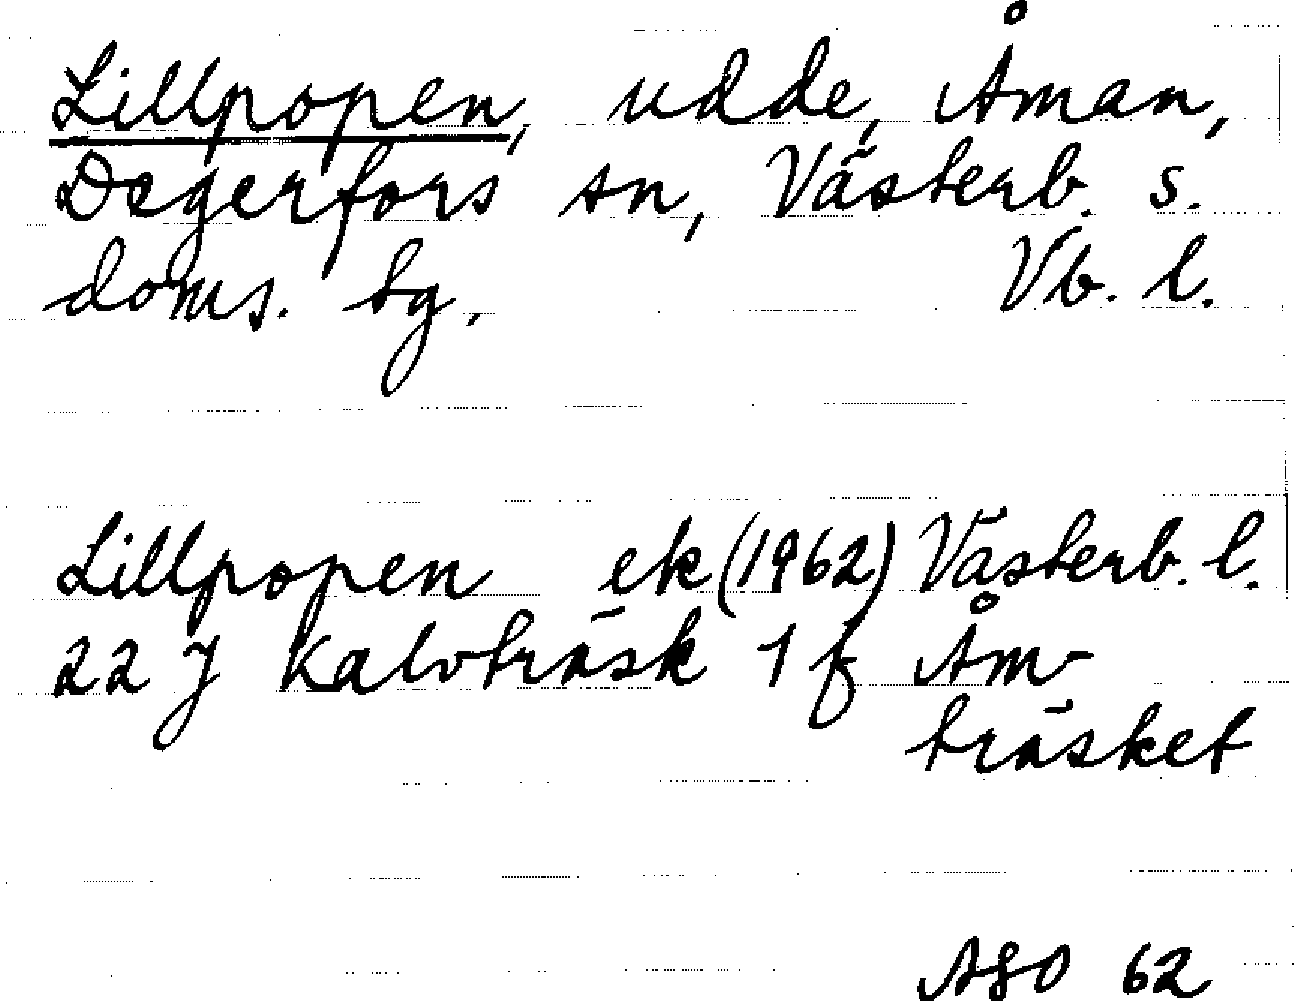 Lillpopen, udde, Åman,
Degerfors sn, Västerb. s.
doms. tg. Vb. l.
Lillpopen ek (1962) Västerb. l.
22 J Kalvträsk 1 f Åm-
träsket
ASO 62